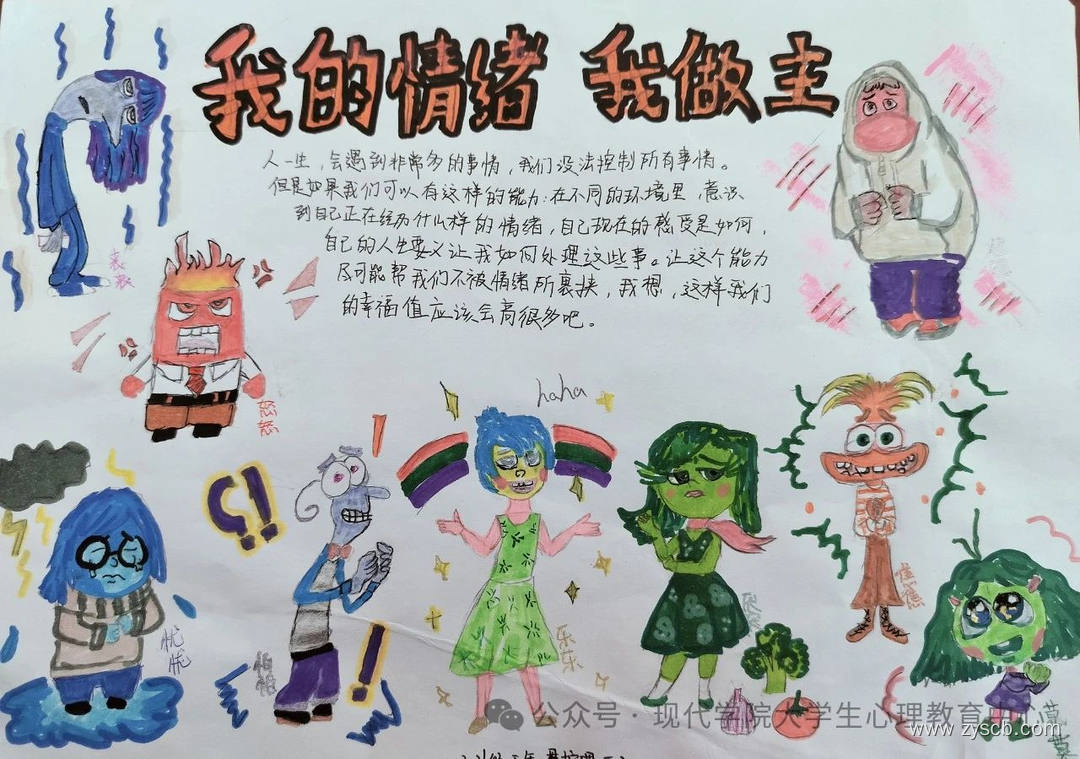 我的情绪 我做主
人一生，会遇到非常多的事情，我们没法控制所有事情。
但是如果我们可以有这样的能力：在不同的环境里，意识
到自己正在经历什么样的情绪，自己现在的感受是如何，
自己的人生要义让我如何处理这些事。让这个能力
尽可能帮我们不被情绪所裹挟，我想，这样我们
的幸福值应该会高很多吧。
丧丧
怒怒
haha
忧忧
怕怕
乐乐
焦
公众号·现代学院大学生心理教育中心
www.zyscb.com